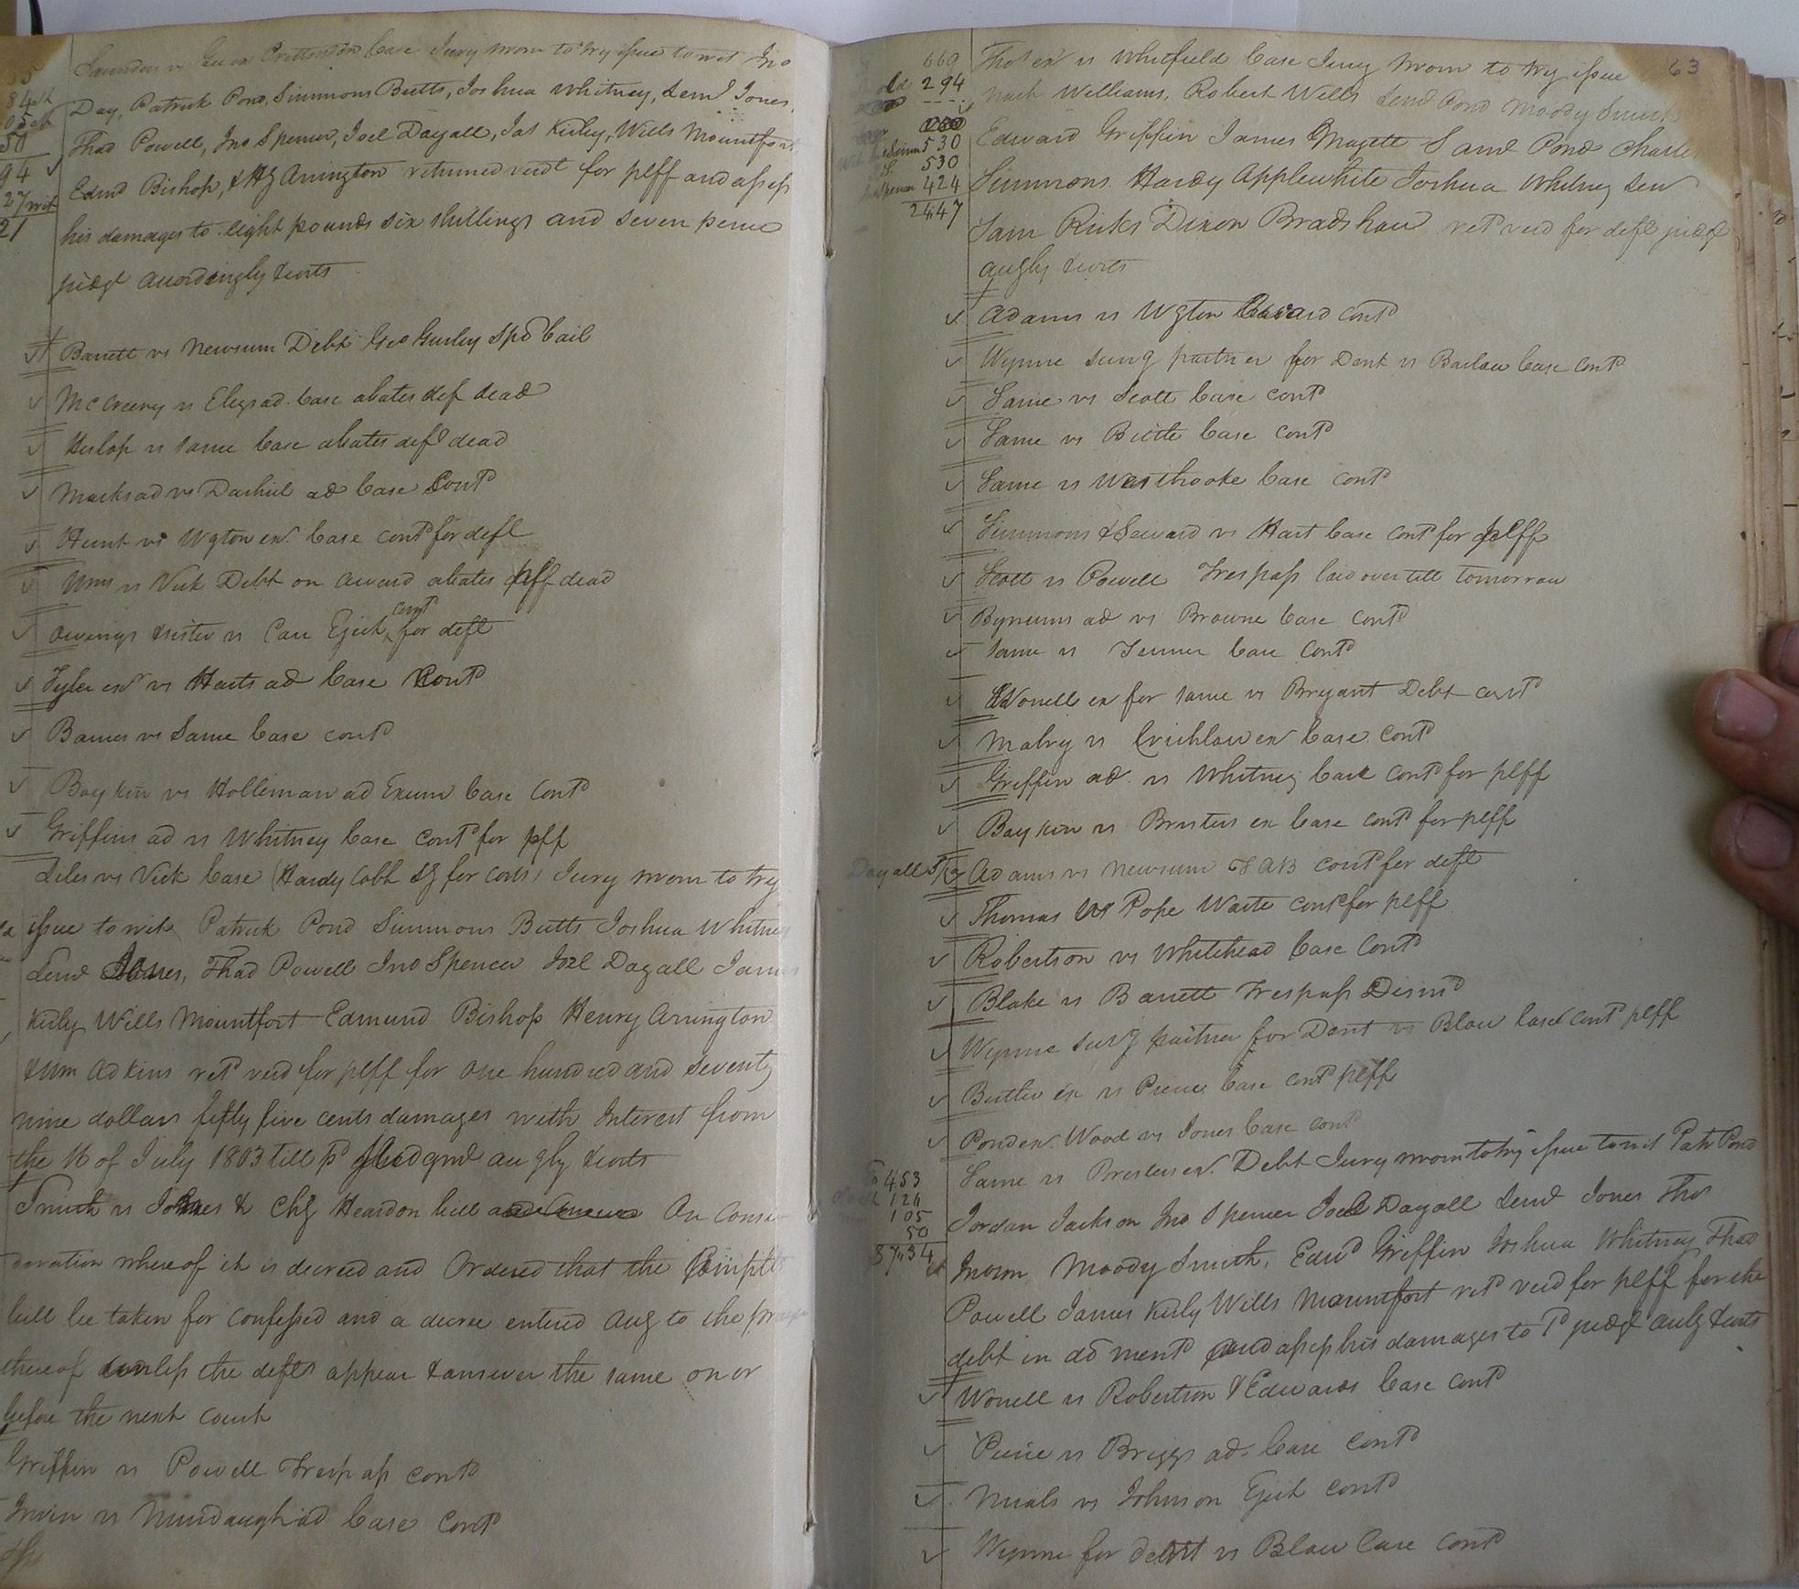 Saunders vs Geo ex Crittenton Case Jury sworn to try issue towit Jno
Day, Patrick Pond, Simmons Butts, Joshua Whitney, Lemd Jones,
Thad Powell, Jno Spencer, Joel Dayall, Jas Kirby, Wills Mountfort
Edmd Bishop, & Hy Arrington returned verdt for plff and assess
his damages to eight pounds six shillings and seven pence
judgt accordingly & costs
Barrett vs Newsum Debt Geo Gurley Spd bail
McCreery vs Eley ad. Case abates def dead
Heslop vs same Case abates deft dead
Marks ad vs Dashiel ad Case Contd
Hunt vs Wgton exr Case contd for deft
Urns vs Vick Debt on award abates plff dead
cont
Owings & sister vs Carr Eject for deft
Tyler exr vs Harts ad Case Contd
Barnes vs Same Case contd
Boykin vs Holliman ad Exum Case Contd
Griffins ad vs Whitney Case contd for plff
Liles vs Vick Case (Hardy Cobb Sy for costs) Jury sworn to try
issue to wit Patrick Pond Simmons Butts Joshua Whitney
Lemd Jones, Thad Powell Jno Spencer Joel Dayall James
Kirby Wills Mountfort Edmund Bishop Henry Arrington
& Wm Adkins retd verd for plff for one hundred and seventy
nine dollars fifty five cents damages with Interest from
the 16 of July 1803 till pd Judgmt augly & costs
Smith vs Jones & Chy Heardon bill On Consi
deration whereof it is decreed and Ordered that the Complts
bill be taken for confessed and a decree entered aug to the prayer
thereof unless the defts appear & answer the same on or
before the next court
Griffin vs Powell Trespass contd
Irwin vs Mundaugh ad Case Contd
63
669
294
530
530
424
2447
Thos ex vs Whitfield Case Jury sworn to try issue
Nath Williams, Robert Wills Lemd Pond Moody Smith
Edward Griffin James Magett Saml Pond Charles
Simmons Hardy Applewhite Joshua Whitney Sen
Sam Ricks Dixon Bradshaw retd verd for deft judgt
augly & costs
Adams vs Wgton Case ad contd
Wynne survg partner for Dent vs Barlow Case Contd
Same vs Scott Case contd
Same vs Bittle Case contd
Same vs Westbrooke Case contd
Simmons & Seward vs Hart Case contd for plff
Scott vs Powell Trespass laid over till tomorrow
Bynums ad vs Browne Case contd
Same vs Turner Case Contd
Worrell ex for same vs Bryant Debt contd
Malry vs Crichlow exr Case Contd
Griffin ad vs Whitney Case contd for plff
Boykin vs Bristers ex Case contd for plff
Dayall Adams vs Newsum TAB contd for deft
Thomas vs Pope Waste contd for plff
Robertson vs Whitehead Case Contd
Blake vs Barrett Trespass Dismd
Wynne survg partner for Dent vs Blow Case contd plff
Butler ex vs Pierce Case contd plff
Pond exr Wood vs Jones Case contd
453
124
105
50
Same vs Bristers exr. Debt Jury sworn to try issue towit Patr Pond
Jordan Jackson Jno Spencer Joel Dayall Lemd Jones Thos
Inman Moody Smith, Edwd Griffin Joshua Whitney Thad
Powell James Kirby Wills Mountfort retd verd for plff for the
debt in decl ment and assess his damages to 1d judgt augly & costs
Worrell vs Robertson & Edwards Case contd
Pierce vs Briggs ad Case Contd
Mials vs Johnson Eject contd
Wynne for dent vs Blow Case contd